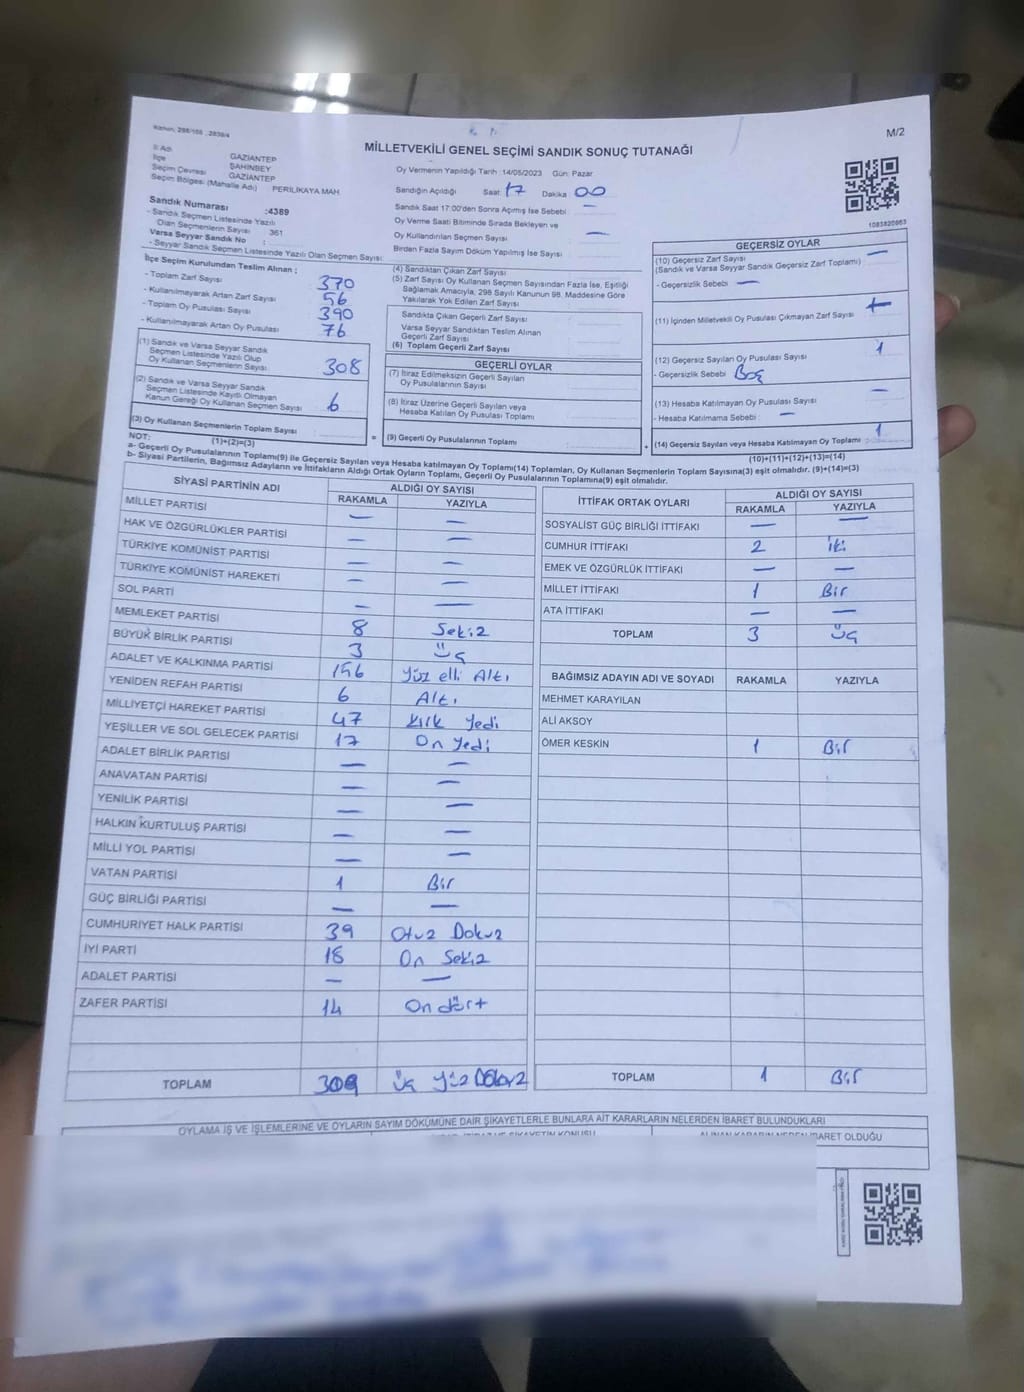 Kanun, 298/105 , 2839/4
M/2
MİLLETVEKİLİ GENEL SEÇİMİ SANDIK SONUÇ TUTANAĞI
İl Adı GAZİANTEP
İlçe ŞAHİNBEY
Seçim Çevresi GAZİANTEP
Seçim Bölgesi (Mahalle Adı) PERİLİKAYA MAH
Sandık Numarası :4389
- Sandık Seçmen Listesinde Yazılı
Olan Seçmenlerin Sayısı 361
Varsa Seyyar Sandık No :
- Seyyar Sandık Seçmen Listesinde Yazılı Olan Seçmen Sayısı:
Oy Vermenin Yapıldığı Tarih :14/05/2023 Gün: Pazar
Sandığın Açıldığı Saat: 17 Dakika 00
Sandık Saat 17:00'den Sonra Açılmış İse Sebebi : —
Oy Verme Saati Bitiminde Sırada Bekleyen ve
Oy Kullandırılan Seçmen Sayısı : —
Birden Fazla Sayım Döküm Yapılmış İse Sayısı :
1083820863
İlçe Seçim Kurulundan Teslim Alınan ;
- Toplam Zarf Sayısı : 370
- Kullanılmayarak Artan Zarf Sayısı : 56
- Toplam Oy Pusulası Sayısı : 390
- Kullanılmayarak Artan Oy Pusulası : 76
(1) Sandık ve Varsa Seyyar Sandık
Seçmen Listesinde Yazılı Olup
Oy Kullanan Seçmenlerin Sayısı : 308
(2) Sandık ve Varsa Seyyar Sandık
Seçmen Listesinde Kayıtlı Olmayan
Kanun Gereği Oy Kullanan Seçmen Sayısı : 6
(3) Oy Kullanan Seçmenlerin Toplam Sayısı :
(1)+(2)=(3)
(4) Sandıktan Çıkan Zarf Sayısı :
(5) Zarf Sayısı Oy Kullanan Seçmen Sayısından Fazla İse, Eşitliği
Sağlamak Amacıyla, 298 Sayılı Kanunun 98. Maddesine Göre
Yakılarak Yok Edilen Zarf Sayısı :
Sandıkta Çıkan Geçerli Zarf Sayısı :
Varsa Seyyar Sandıktan Teslim Alınan
Geçerli Zarf Sayısı :
(6) Toplam Geçerli Zarf Sayısı :
GEÇERLİ OYLAR
(7) İtiraz Edilmeksizin Geçerli Sayılan
Oy Pusulalarının Sayısı :
(8) İtiraz Üzerine Geçerli Sayılan veya
Hesaba Katılan Oy Pusulası Toplamı :
= (9) Geçerli Oy Pusulalarının Toplamı :
GEÇERSİZ OYLAR
(10) Geçersiz Zarf Sayısı : —
(Sandık ve Varsa Seyyar Sandık Geçersiz Zarf Toplamı)
- Geçersizlik Sebebi : —
(11) İçinden Milletvekili Oy Pusulası Çıkmayan Zarf Sayısı :
(12) Geçersiz Sayılan Oy Pusulası Sayısı : 1
- Geçersizlik Sebebi : Boş
(13) Hesaba Katılmayan Oy Pusulası Sayısı : —
- Hesaba Katılmama Sebebi : —
+ (14) Geçersiz Sayılan veya Hesaba Katılmayan Oy Toplamı : 1
(10)+(11)+(12)+(13)=(14)
NOT:
a- Geçerli Oy Pusulalarının Toplamı(9) ile Geçersiz Sayılan veya Hesaba katılmayan Oy Toplamı(14) Toplamları, Oy Kullanan Seçmenlerin Toplam Sayısına(3) eşit olmalıdır. (9)+(14)=(3)
b- Siyasi Partilerin, Bağımsız Adayların ve İttifakların Aldığı Ortak Oyların Toplamı, Geçerli Oy Pusulalarının Toplamına(9) eşit olmalıdır.
SİYASİ PARTİNİN ADI ALDIĞI OY SAYISI
RAKAMLA YAZIYLA
MİLLET PARTİSİ — —
HAK VE ÖZGÜRLÜKLER PARTİSİ — —
TÜRKİYE KOMÜNİST PARTİSİ — —
TÜRKİYE KOMÜNİST HAREKETİ — —
SOL PARTİ — —
MEMLEKET PARTİSİ 8 Sekiz
BÜYÜK BİRLİK PARTİSİ 3 Üç
ADALET VE KALKINMA PARTİSİ 156 Yüz elli Altı
YENİDEN REFAH PARTİSİ 6 Altı
MİLLİYETÇİ HAREKET PARTİSİ 47 Kırk Yedi
YEŞİLLER VE SOL GELECEK PARTİSİ 17 On Yedi
ADALET BİRLİK PARTİSİ — —
ANAVATAN PARTİSİ — —
YENİLİK PARTİSİ — —
HALKIN KURTULUŞ PARTİSİ — —
MİLLİ YOL PARTİSİ — —
VATAN PARTİSİ 1 Bir
GÜÇ BİRLİĞİ PARTİSİ — —
CUMHURİYET HALK PARTİSİ 39 Otuz Dokuz
İYİ PARTİ 18 On Sekiz
ADALET PARTİSİ — —
ZAFER PARTİSİ 14 On dört
TOPLAM 309 Üç Yüz Dokuz
İTTİFAK ORTAK OYLARI ALDIĞI OY SAYISI
RAKAMLA YAZIYLA
SOSYALİST GÜÇ BİRLİĞİ İTTİFAKI — —
CUMHUR İTTİFAKI 2 iki
EMEK VE ÖZGÜRLÜK İTTİFAKI — —
MİLLET İTTİFAKI 1 Bir
ATA İTTİFAKI — —
TOPLAM 3 Üç
BAĞIMSIZ ADAYIN ADI VE SOYADI RAKAMLA YAZIYLA
MEHMET KARAYILAN
ALİ AKSOY
ÖMER KESKİN 1 Bir
TOPLAM 1 Bir
OYLAMA İŞ VE İŞLEMLERİNE VE OYLARIN SAYIM DÖKÜMÜNE DAİR ŞİKAYETLERLE BUNLARA AİT KARARLARIN NELERDEN İBARET BULUNDUKLARI
ALINAN KARARIN NEDEN İBARET OLDUĞU